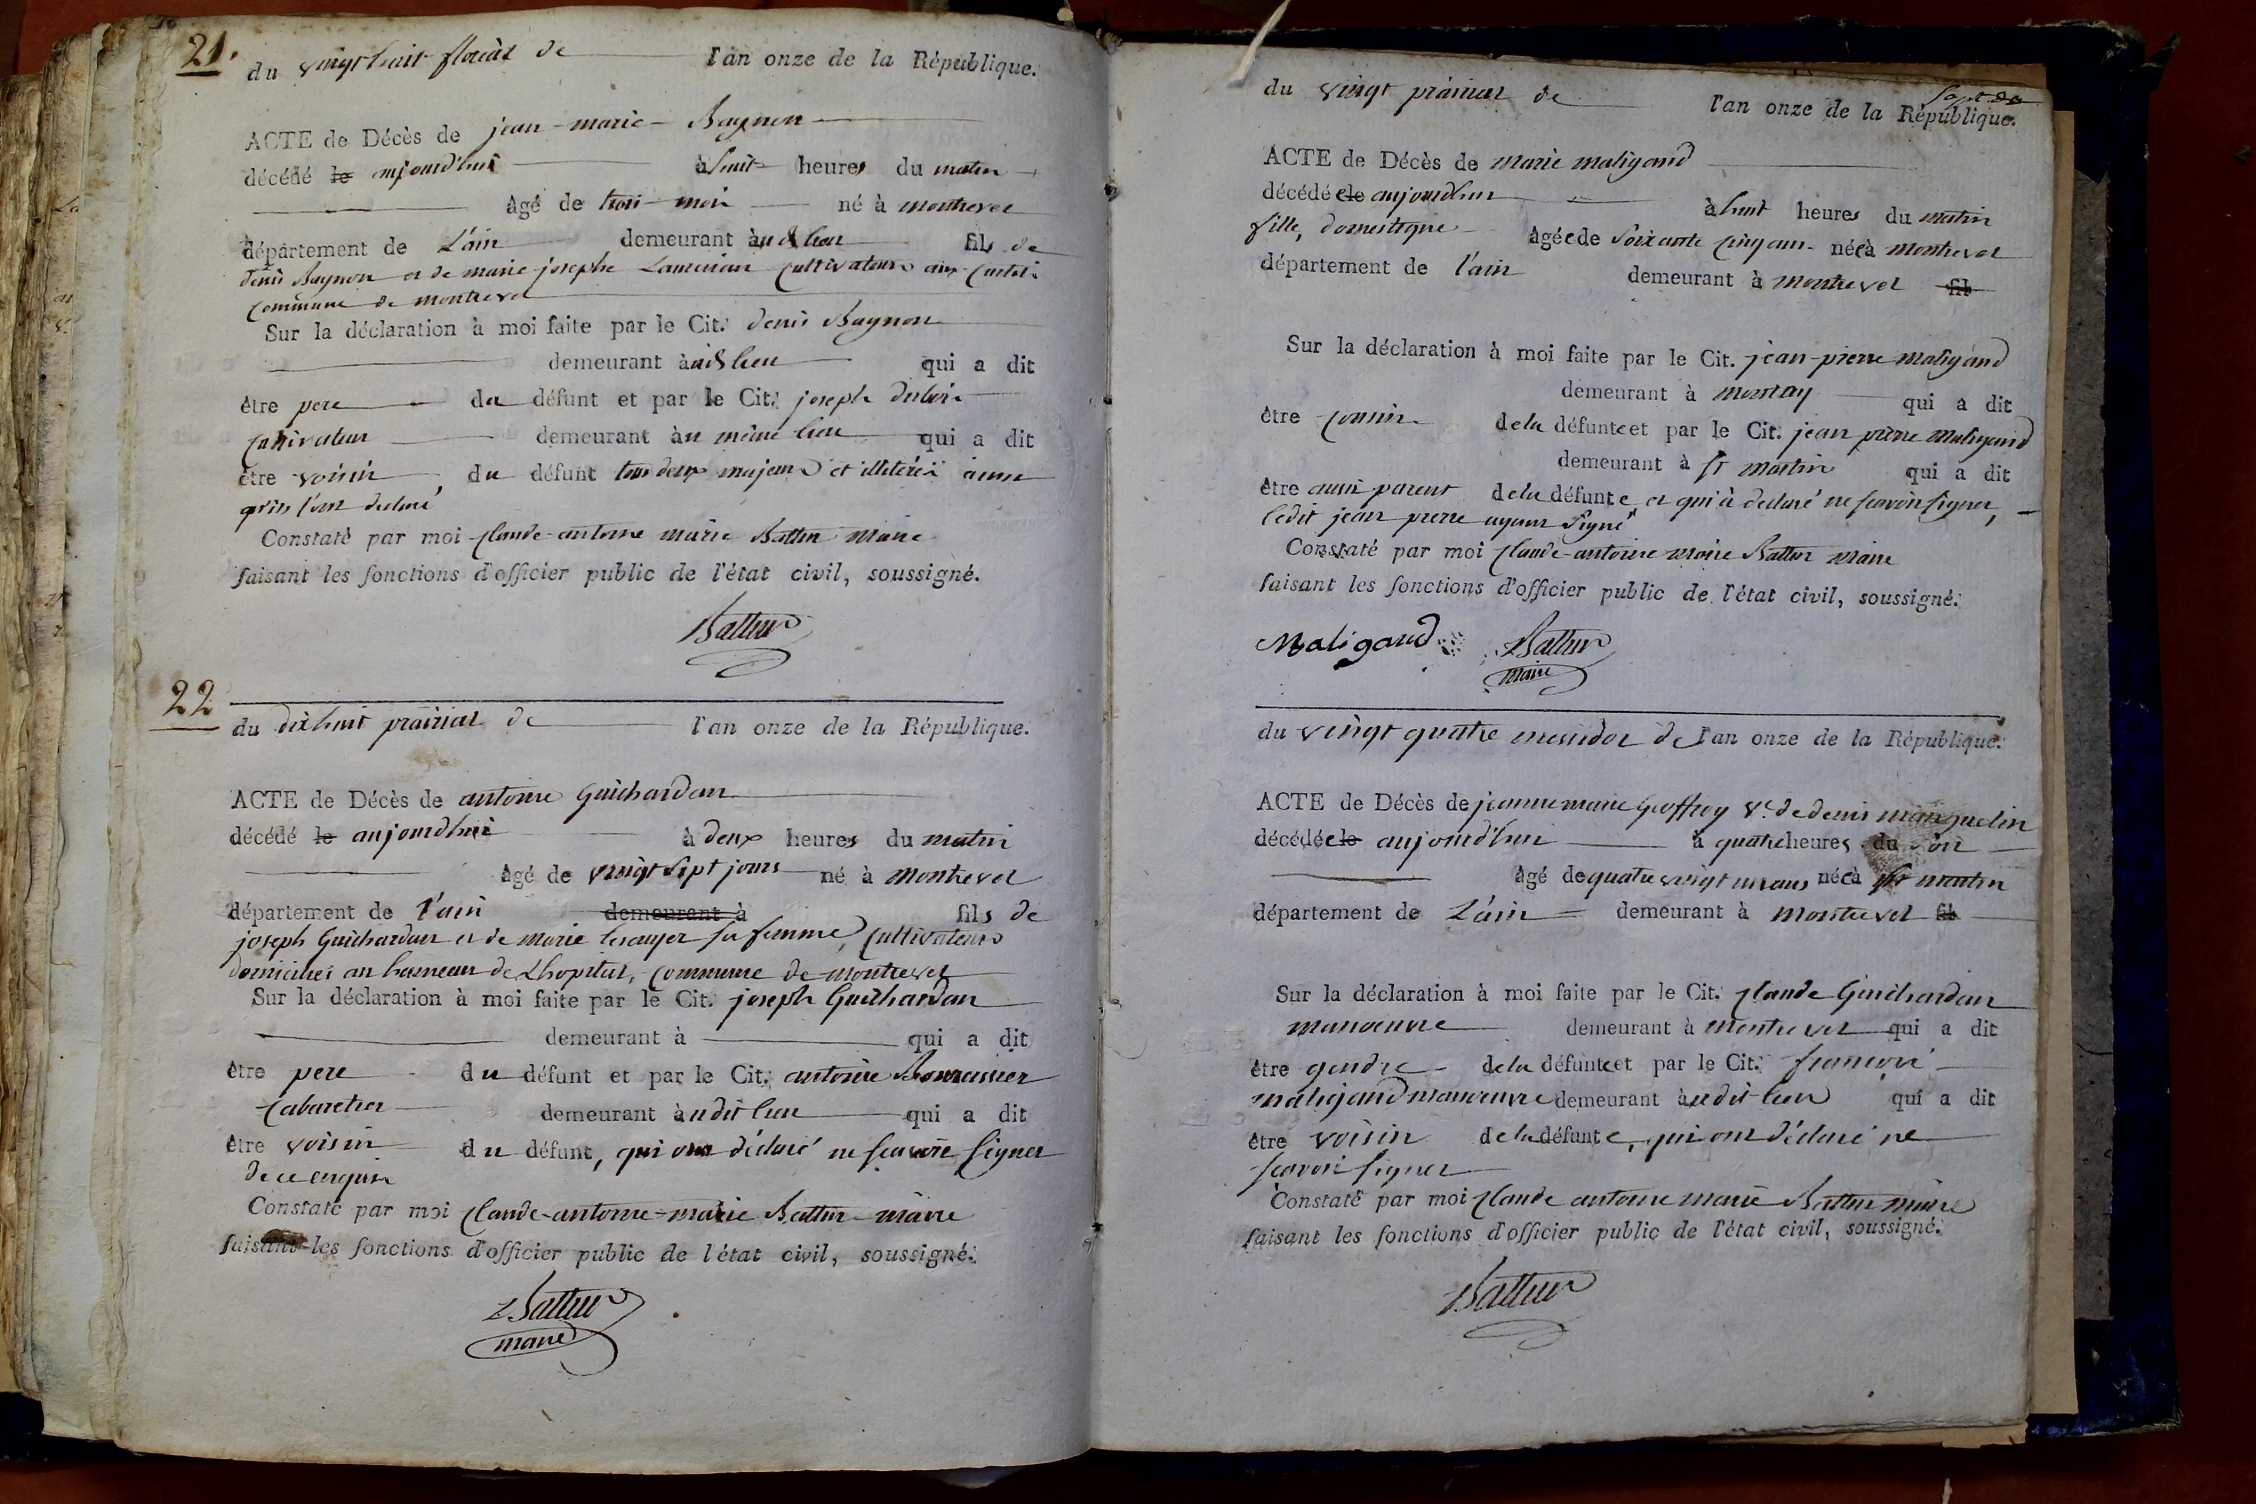 21.
du vingt huit floréal de l'an onze de la République.
ACTE de Décès de jean-marie-Bagnon
décédé le aujourd'hui à huit heures du matin
âgé de trois mois né à montrevel
département de L'ain demeurant au d. lieu fils de
denis Bagnon et de marie-josephe cultivateurs aux
commune de montrevel
Sur la déclaration à moi faite par le Cit. denis Bagnon
demeurant à lieu qui a dit
être pere du défunt et par le Cit. joseph
cultivateur demeurant au même lieu qui a dit
être voisin, du défunt tous deux majeurs et illiterés ainsi
qu'ils l'ont declaré
Constaté par moi Claude-antoine marie Battur maire
faisant les fonctions d'officier public de l'état civil, soussigné.
Battur
22
du dixhuit prairial de l'an onze de la République.
ACTE de Décès de antoine Guichardan
décédé le aujourdhui à deux heures du matin
âgé de vingt sept jours né à Montrevel
département de l'ain demeurant à fils de
joseph Guichardan et de marie sa femme, cultivateurs
domiciliés au hameau de Lhopital, commune de montrevel
Sur la déclaration à moi faite par le Cit. joseph Guichardan
demeurant à qui a dit
être pere du défunt et par le Cit. antoine
Cabaretier demeurant audit lieu qui a dit
être voisin du défunt, qui ont déclaré ne scavoir signer
de ce enquis
Constaté par moi Claude-antoine-marie Battur maire
faisant les fonctions d'officier public de l'état civil, soussigné.
Battur
maire
du vingt prairial de l'an onze de la République.
ACTE de Décès de marie maligand
décédée le aujourdhui à huit heures du matin
fille, domestique âgée de soixante cinq ans née à montrevel
département de l'ain demeurant à montrevel fils
Sur la déclaration à moi faite par le Cit. jean-pierre maligand
demeurant à montay qui a dit
être cousin de la défunte et par le Cit. jean pierre maligand
demeurant à st martin qui a dit
être aussi parent de la défunte, et qui à declaré ne scavoir signer,
ledit jean pierre ayant signé
Constaté par moi Claude-antoine marie Battur maire
faisant les fonctions d'officier public de l'état civil, soussigné.
Maligand Battur
maire
du vingt quatre messidor de l'an onze de la République.
ACTE de Décès de jeanne marie Geoffroy Ve. de denis manguelin
décédée le aujourd'hui à quatre heures du soir
âgé de quatre vingt un ans née à st martin
département de L'ain demeurant à montrevel fils
Sur la déclaration à moi faite par le Cit. Claude Guichardan
manoeuvre demeurant à montrevel qui a dit
être gendre de la défunte et par le Cit. francois
maligand manoeuvre demeurant audit lieu qui a dit
être voisin de la défunte, qui ont déclaré ne
scavoir signer
Constaté par moi Claude antoine marie Battur maire
faisant les fonctions d'officier public de l'état civil, soussigné.
Battur